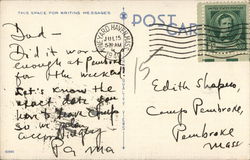 THIS SPACE FOR WRITING MESSAGES
POST CARD
JUL 15
5 30 AM
Dad —
Did it wor
enough at Pembroke
for the weekend?
Let's know the
exact date you
have to leave Camp
so we
Pa Ma
15
Edith Shapiro,
Camp Pembroke,
Pembroke
Mass